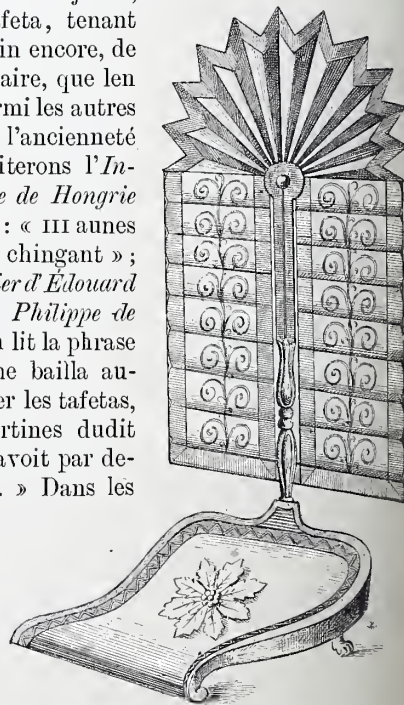 feta, tenant
in encore, de
aire, que len
rmi les autres
l'ancienneté
iterons l'In-
e de Hongrie
: « III aunes
chingant » ;
ier d'Édouard
Philippe de
lit la phrase
ne bailla au-
er les tafetas,
rtines dudit
avoit par de-
. » Dans les